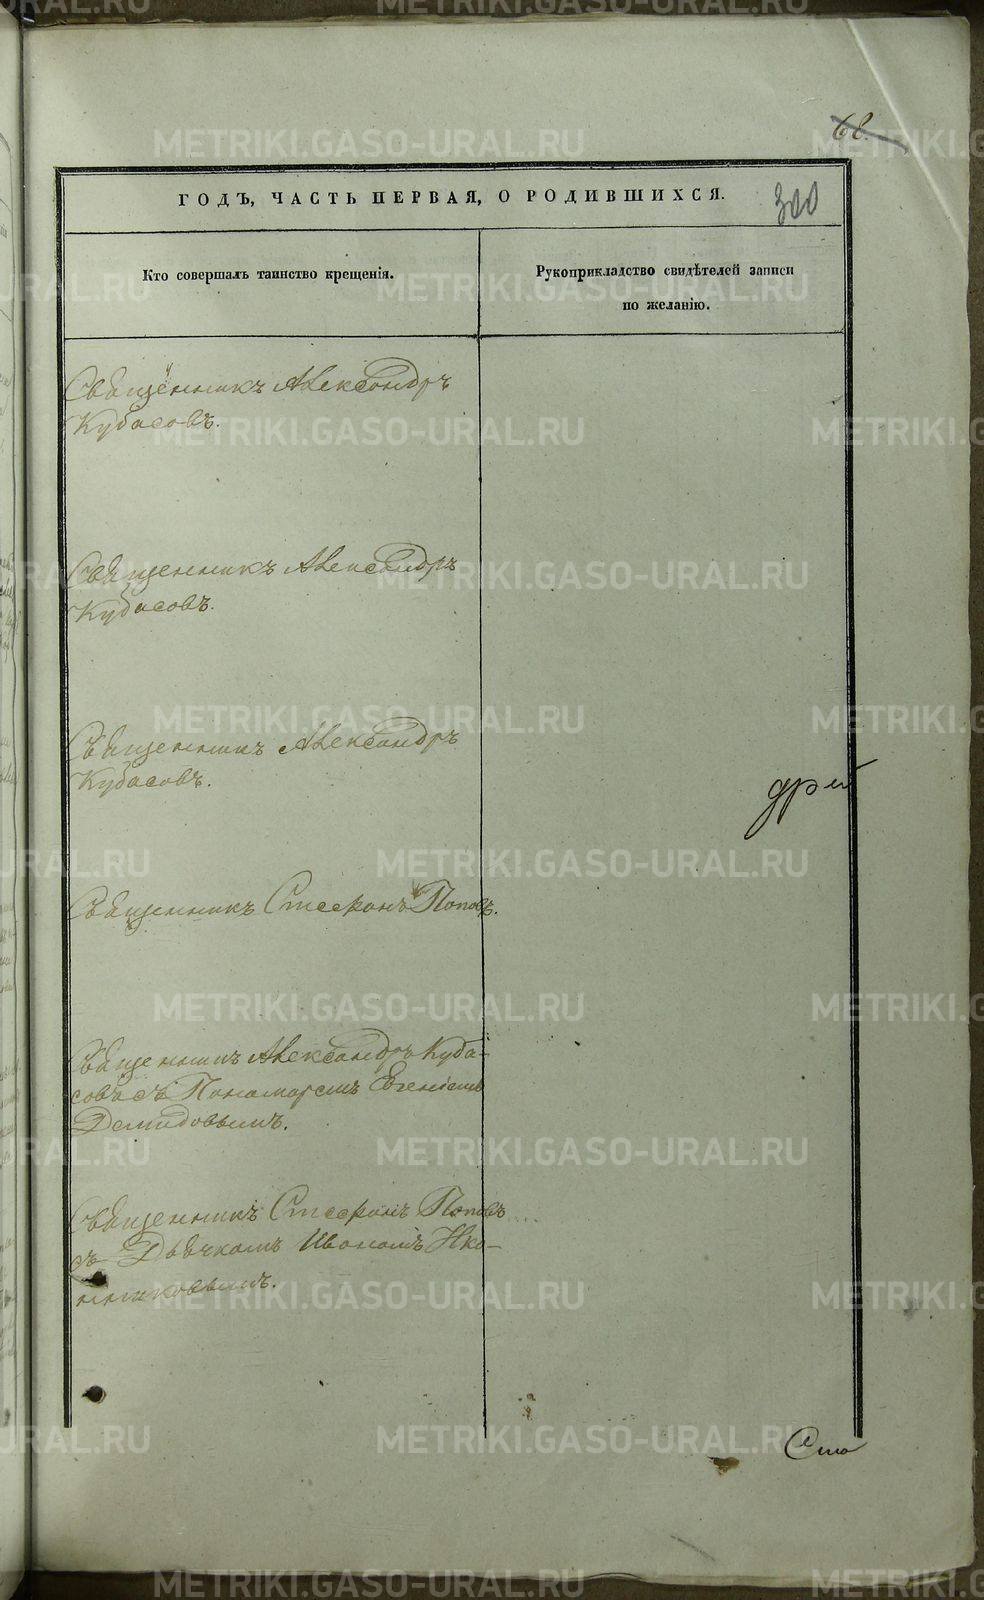 68
ГОДЪ, ЧАСТЬ ПЕРВАЯ, О РОДИВШИХСЯ.
300
Кто совершалъ таинство крещенія.
Рукоприкладство свидѣтелей записи
по желанію.
Священникъ Александръ
Кубасовъ.
Священникъ Александръ
Кубасовъ.
Священникъ Александръ
Кубасовъ.
дрей
Священникъ Стефанъ Поповъ.
Священникъ Александръ Куба-
совъ съ Пономаремъ Евгеніемъ
Демидовымъ.
Священникъ Стефанъ Поповъ
съ Дьячкомъ Иваномъ Ико-
нниковымъ.
METRIKI.GASO-URAL.RU